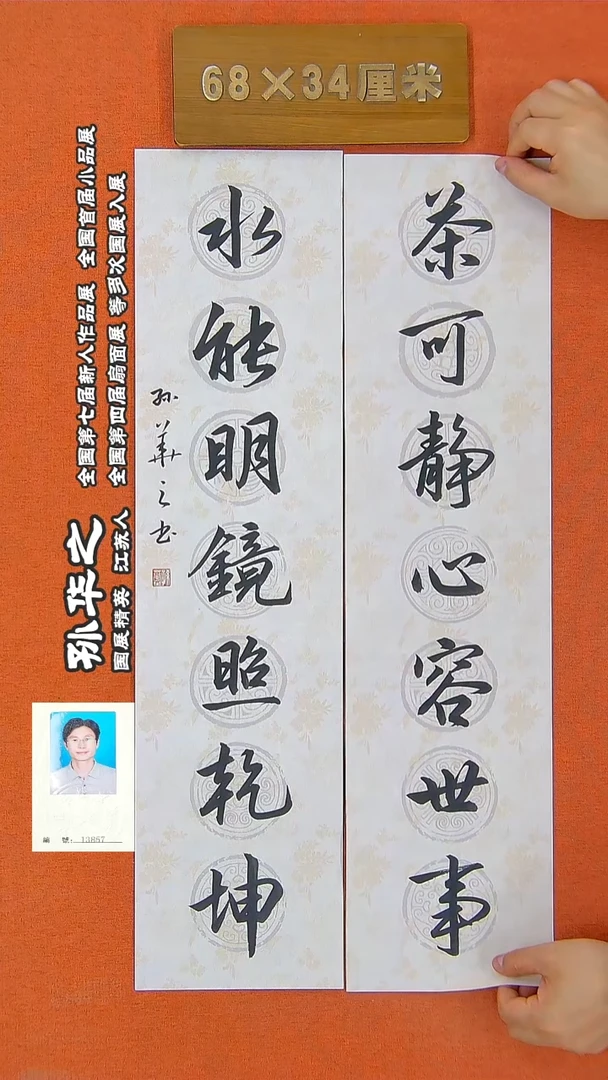 68×34厘米
茶可静心容世事
水能明鏡照乾坤
孙華之书
孙华之
全国第七届新人作品展 全国首届小品展
国展精英 江苏人 全国第四届扇面展 等多次国展入展
编 号：13857